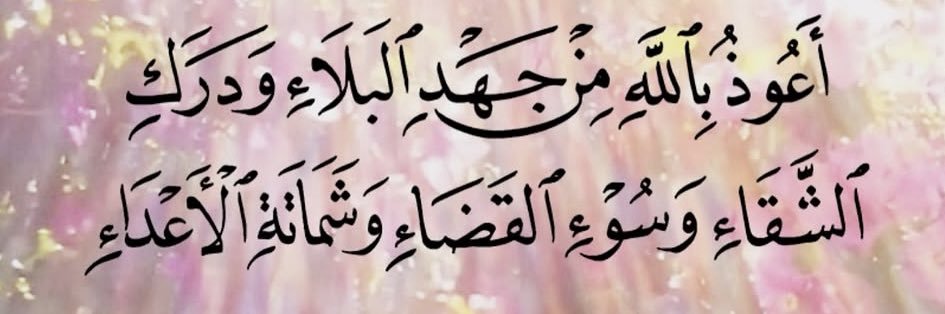 أَعُوذُ بِٱللَّهِ مِنْ جَهْدِ ٱلبَلَاءِ وَدَرَكِ
ٱلشَّقَاءِ وَسُوْءِ ٱلقَضَاءِ وَشَمَاتَةِ ٱلْأَعْدَاءِ